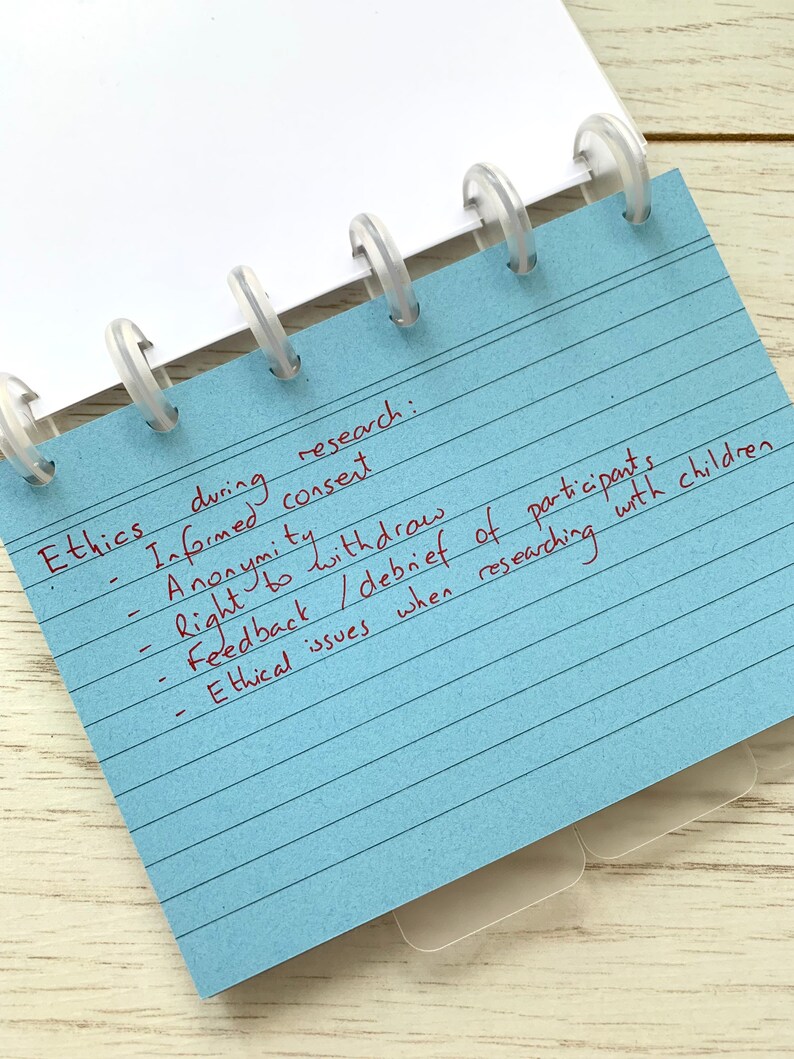 Ethics during research:
- Informed consent
- Anonymity
- Right to withdraw
- Feedback / debrief of participants
- Ethical issues when researching with children